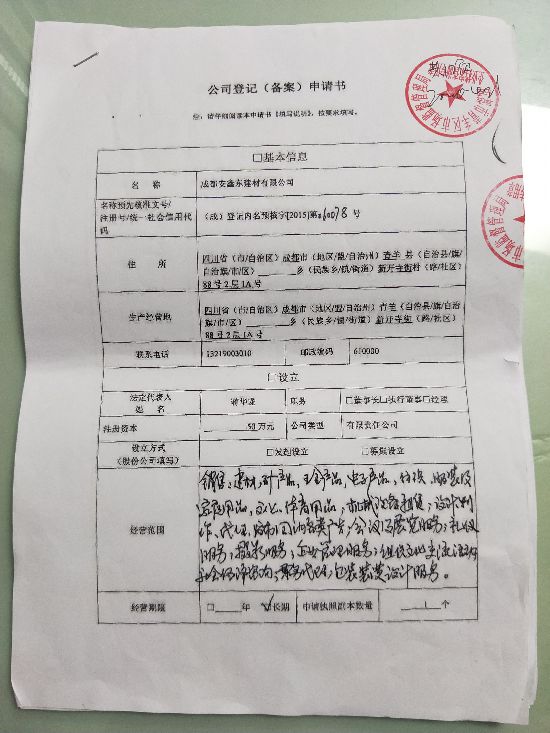 公司登记（备案）申请书
注：请仔细阅读本申请书《填写说明》，按要求填写。
□基本信息
名 称 成都安鑫东建材有限公司
名称预先核准文号/
注册号/统一社会信用代
码
（成）登记内名预核字[2015]第 号
住 所
四川省（市/自治区）成都市（地区/盟/自治州）青羊 县（自治县/旗/
自治旗/市/区）______乡（民族乡/镇/街道）新开寺街村（路/社区）
88号2层1A号
生产经营地
四川省（市/自治区）成都市（地区/盟/自治州）青羊（自治县/旗/自治
旗/市/区）______乡（民族乡/镇/街道）新开寺街（路/社区）
88号2层1A号
联系电话 13219003010 邮政编码 610000
□设立
法定代表人
姓 名
职务 □董事长□执行董事□经理
注册资本 50万元 公司类型 有限责任公司
设立方式
（股份公司填写）
□发起设立 □募集设立
经营范围
销售：建材，矿产品，五金产品，电子产品，
家庭用品，文化、体育用品；机械设备租赁；设计、制
作、代理、发布国内各类广告；会议及展览服务；礼仪
服务；摄影服务；企业管理服务；组织文化交流活动
包装装潢设计服务。
经营期限 □____年 ☑长期 申请执照副本数量 1 个